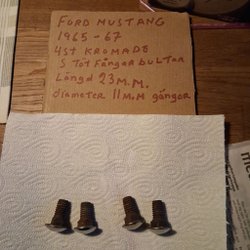 FORD MUSTANG
1965-67
4st KROMADE
STÖTFÅNGARBULTAR
Längd 23 M.M.
diameter 11 M.M gängor